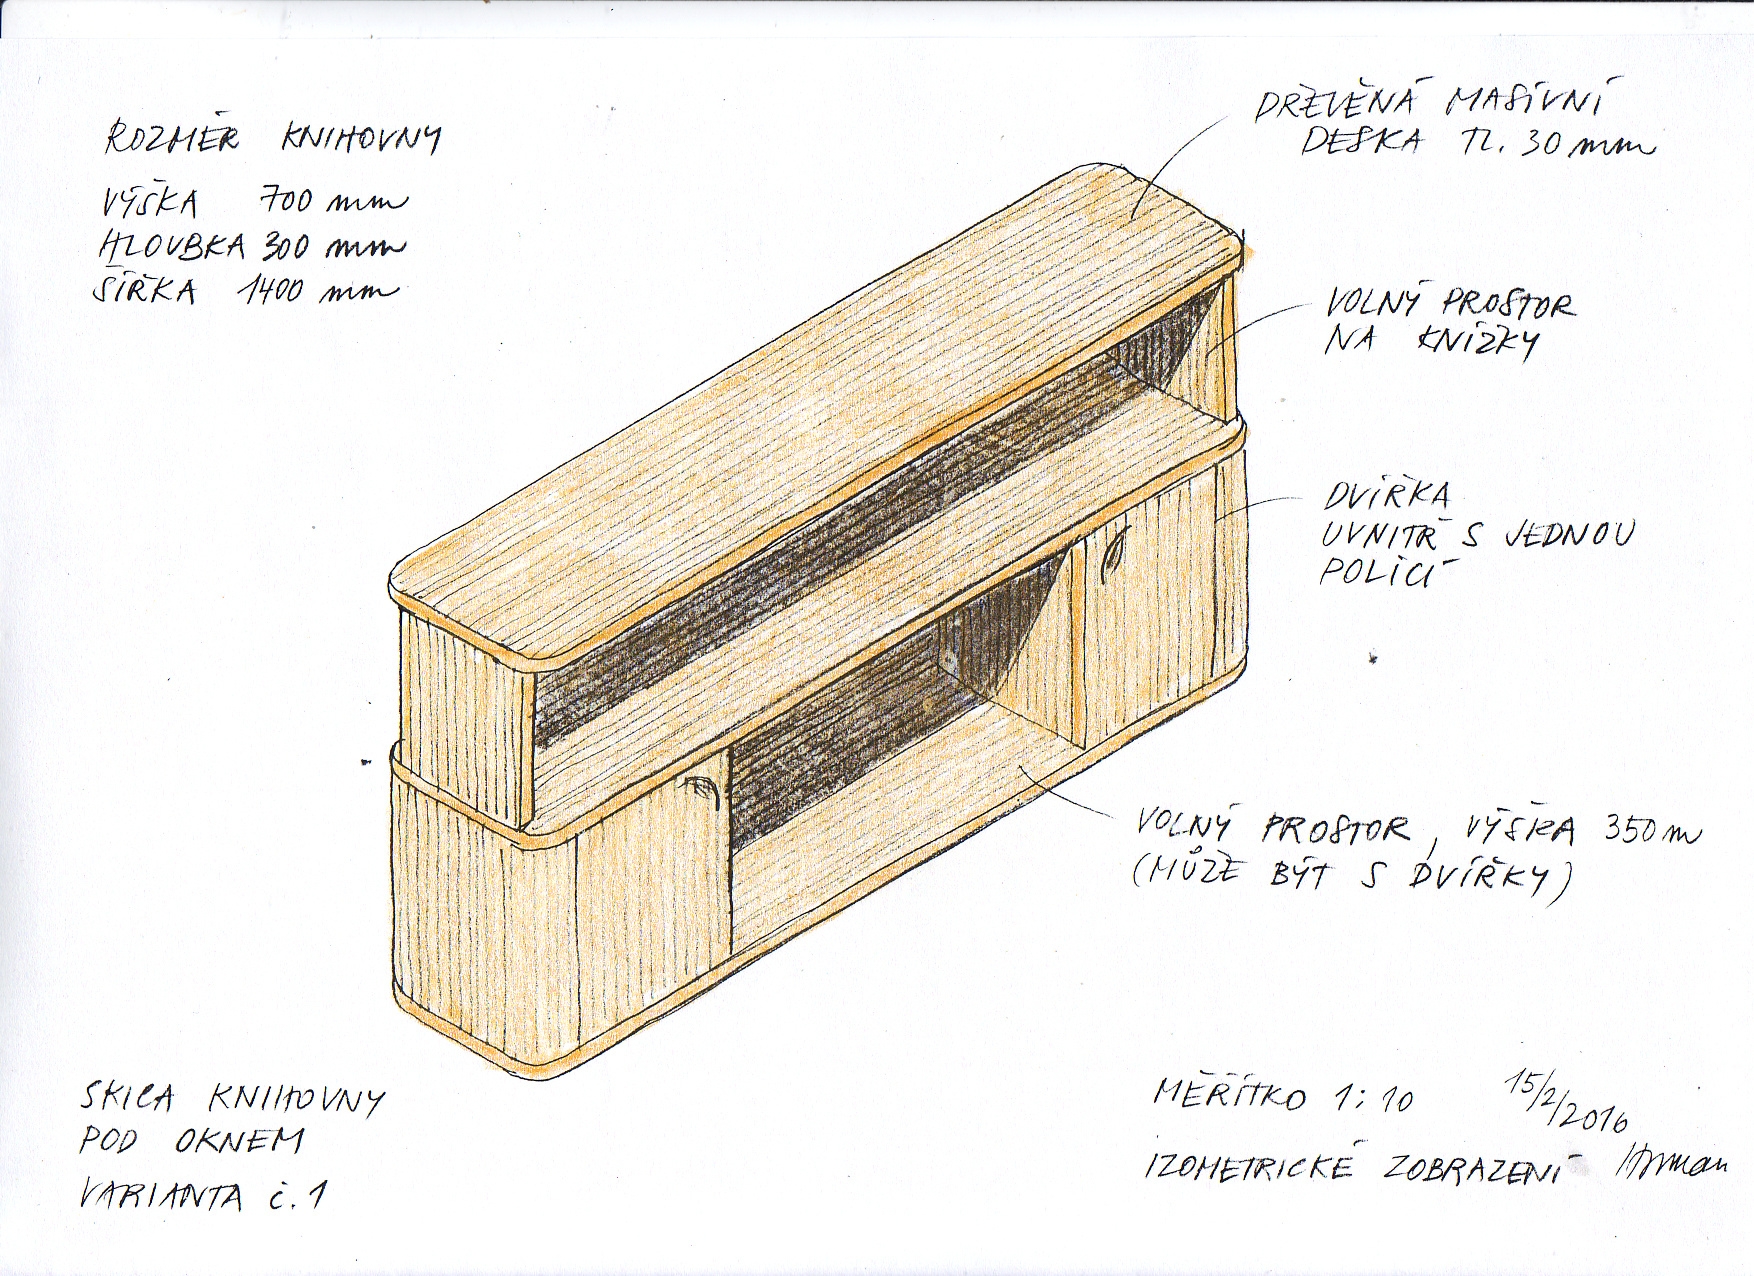 ROZMĚR KNIHOVNY
VÝŠKA 700 mm
HLOUBKA 300 mm
ŠÍŘKA 1400 mm
DŘEVĚNÁ MASIVNÍ
DESKA TL. 30 mm
VOLNÝ PROSTOR
NA KNÍŽKY
DVÍŘKA
UVNITŘ S JEDNOU
POLICÍ
VOLNÝ PROSTOR, VÝŠKA 350 m
(MŮŽE BÝT S DVÍŘKY)
SKICA KNIHOVNY
POD OKNEM
VARIANTA č. 1
MĚŘÍTKO 1:10 15/2/2016
IZOMETRICKÉ ZOBRAZENÍ